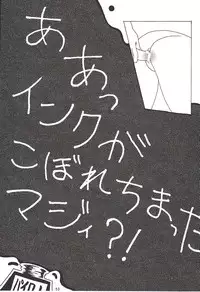 ああっ
インクが
こぼれちまった
マジィ?!